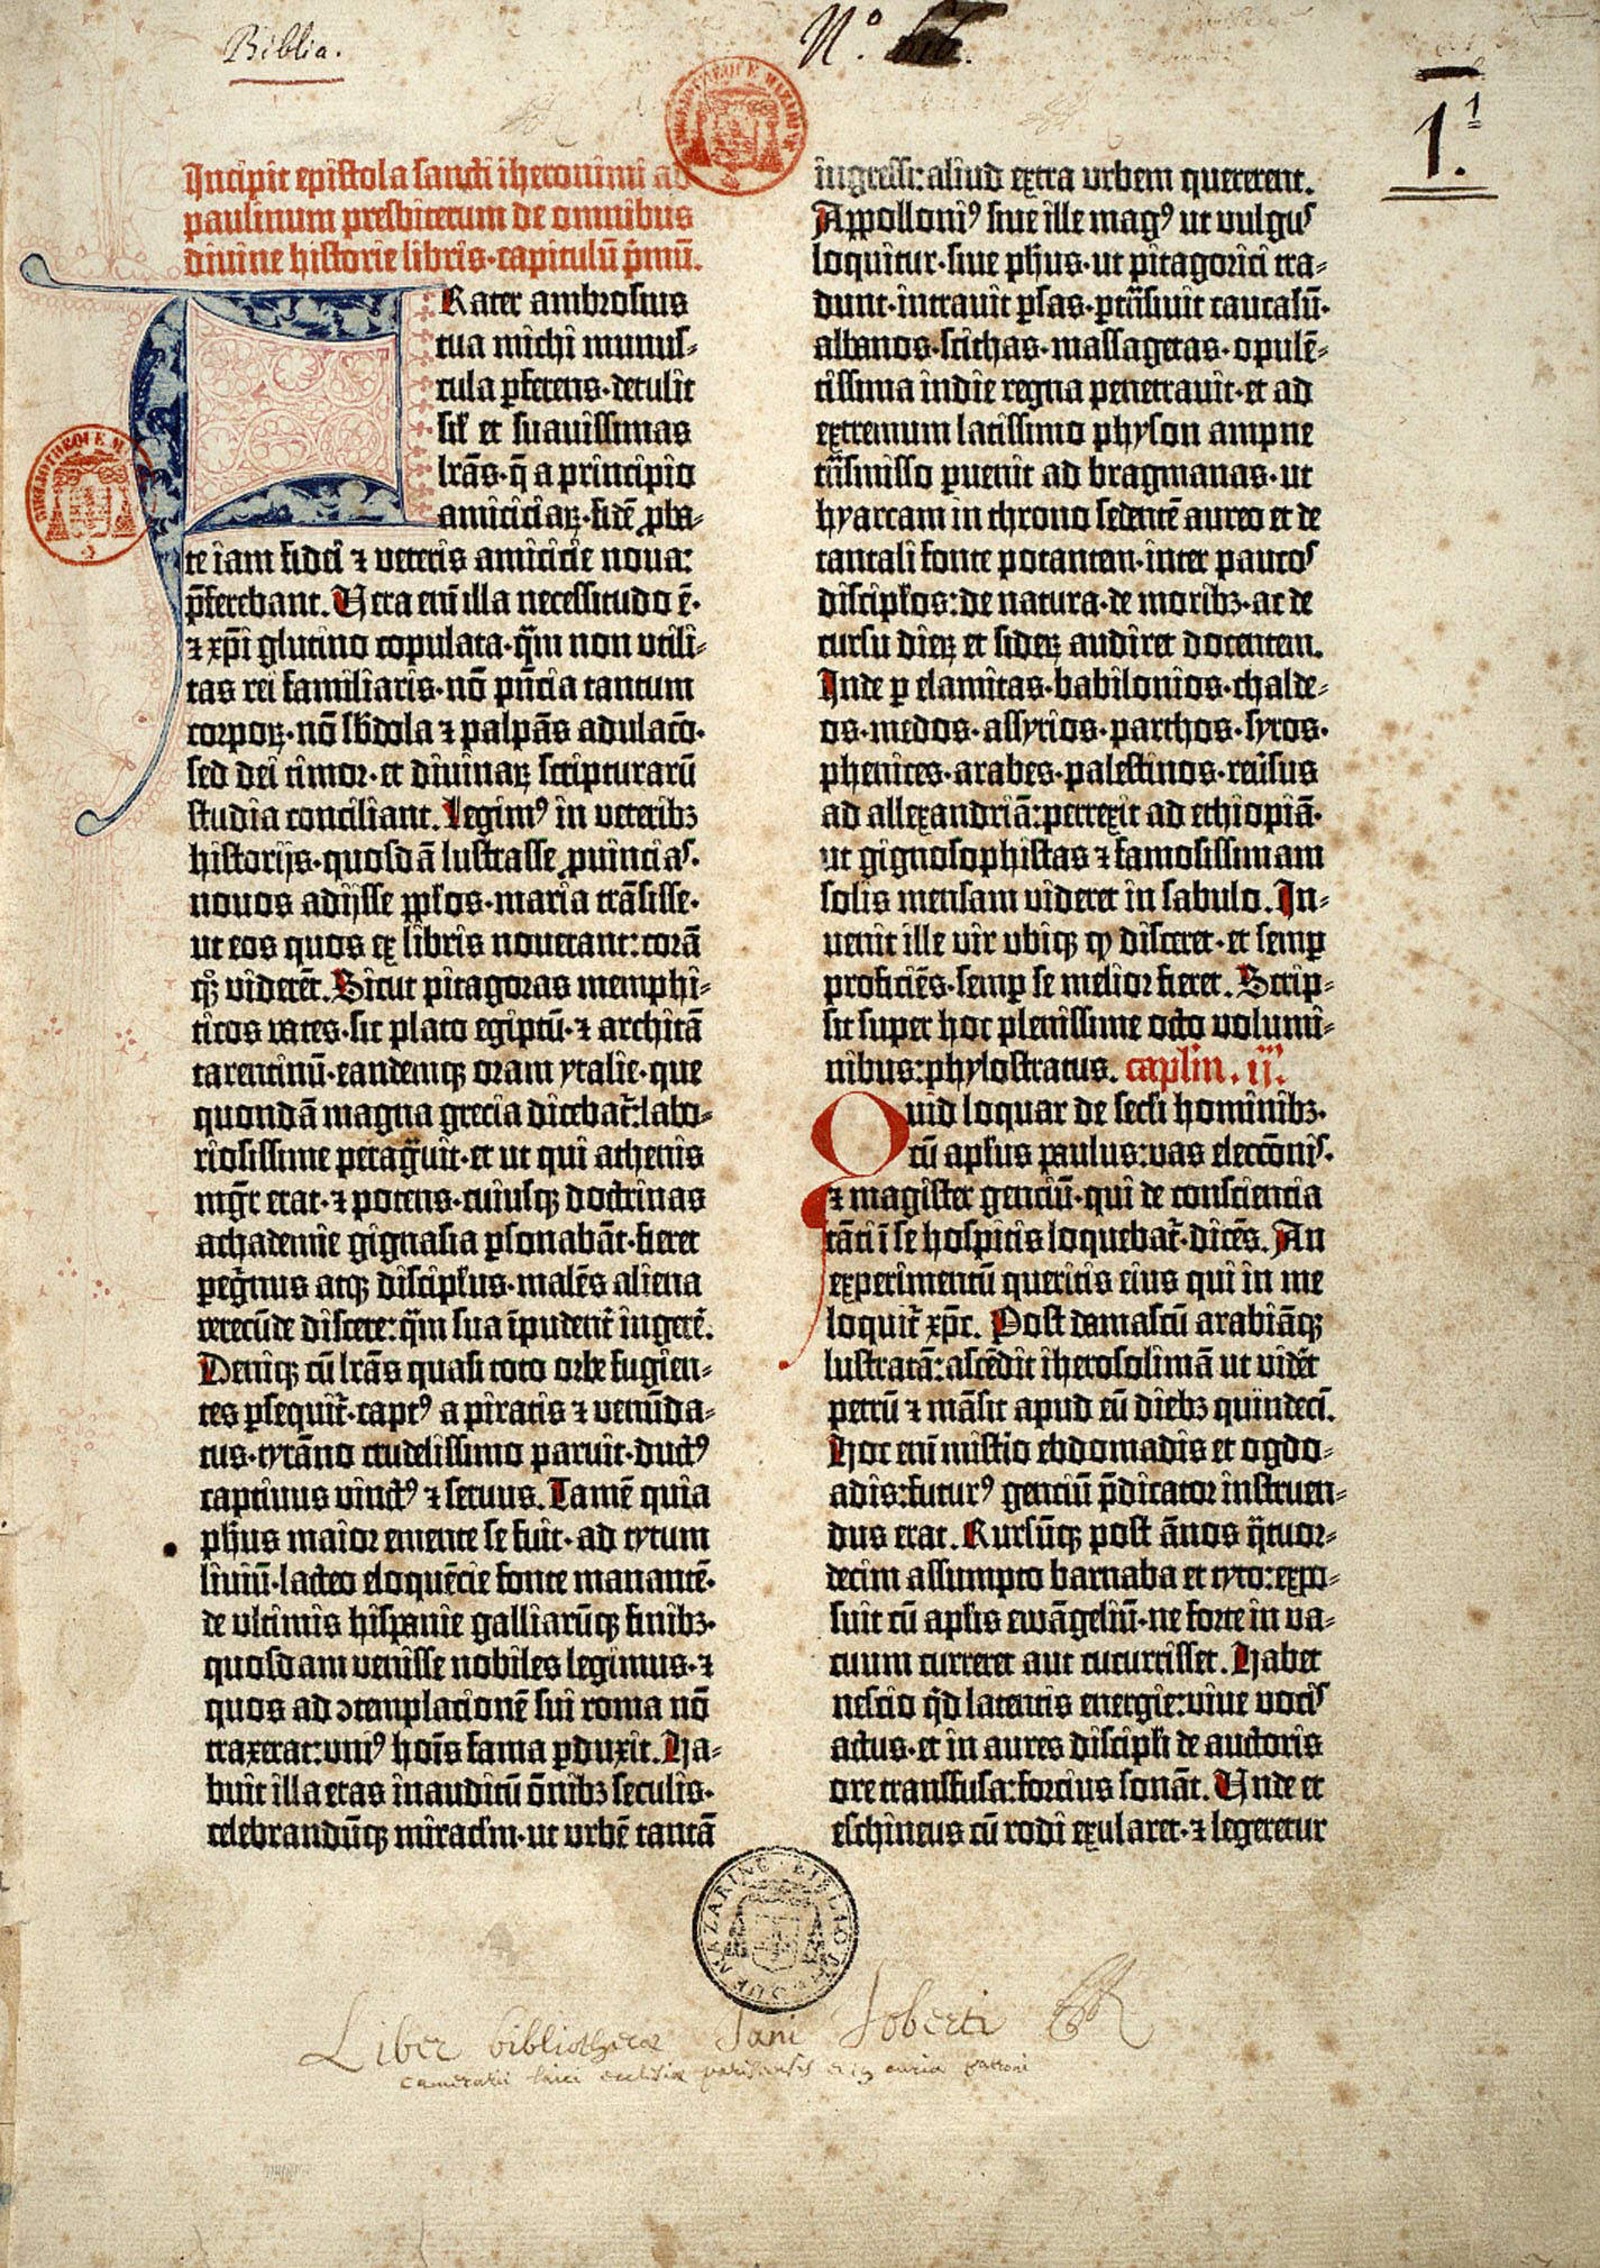 Biblia.
N°
1.
1
Incipit epistola sancti iheronimi ad
paulinum presbiterum de omnibus
divine historie libris·capitulū p̄mū.
FRater ambrosius
tua michi munus-
cula ꝑferens·detulit
sil̕ et suavissimas
lrās·q̄ a principio
amiciciaꝝ·fidē ꝓba-
te iam fidei ⁊ veteris amicicie nova:
p̄ferebant. Vera enī illa necessitudo ē·
⁊ xp̄i glutino copulata·q̄m non utili-
tas rei familiaris·nō pn̄cia tantum
corpoꝝ·nō sb̄dola ⁊ palpās adulacō·
sed dei timor·et divinaꝝ scripturarū
studia conciliant. Legimꝰ in veteribꝫ
historijs·quosdā lustrasse ꝓvincias·
novos adijsse ppl̕os·maria trāsisse·
ut eos quos ex libris noverant: corā
qꝫ viderēt. Sicut pitagoras memphi-
ticos vates·sic plato egiptū·⁊ architā
tarentinū·eandemqꝫ oram ytalie·que
quondā magna grecia dicebat̄: labo-
riosissime peragͣvit·et ut qui athenis
mgr̄ erat·⁊ potens·cuiusqꝫ doctrinas
achademie gignasia ꝑsonabāt·fieret
peg̓nus atqꝫ discipl̕us·malēs aliena
verecūde discere: q̄m sua īpudent̄ ingerē̕.
Deniqꝫ cū lrās quasi toto orbe fugien-
tes ꝑsequit̄·captꝰ a piratis ⁊ venūda-
tus·tyrāno crudelissimo paruit·ductꝰ
captivus vinctꝰ ⁊ servus. Tamē quia
phūs maior emente se fuit· ad tytum
liviū·lacteo eloquēcie fonte manantē·
de ultimis hispanie galliarūqꝫ finibꝫ·
quosdam venisse nobiles legimus·⁊
quos ad ↄtemplacionē sui roma nō
traxerat: unīꝰ hoīs fama ꝑduxit. Ha-
buit illa etas inauditū ōnibꝫ seculis·
celebrandūqꝫ miraclm·ut urbē tantā
ingressi: aliud extra urbem quererent.
Appollonīꝰ sive ille magꝰ ut vulgus
loquitur·sive phūs·ut pitagorici tra-
dunt·intravit ꝑsas·ꝑtrāsivit caucasū·
albanos·scithas·massagetas·opulē-
tissima indie regna penetravit·et ad
extremum latissimo physon ampne
trāsmisso ꝑvenit ad bragmanas·ut
hyarcam in throno sedentē aureo et de
tantali fonte potantem·inter paucos
discipl̕os: de natura·de moribꝫ·ac de
cursu dieꝝ et sideꝝ audiret docentem.
Inde ꝑ elamitas·babilonios·chalde-
os·medos·assyrios·parthos·syros·
phenices·arabes·palestinos·reūsus
ad allexandriā: perrexit ad ethiopiā·
ut gignosophistas ⁊ famosissimam
solis mensam videret in sabulo. In-
venit ille vir ubiqꝫ qđ disceret·et semꝑ
proficiēs·semꝑ se melior fieret. Scrip-
sit super hoc plenissime octo volumi-
nibus: phylostratus. capl̕m. ij.
Quid loquar de secl̕i hominibꝫ·
cū apl̕us paulus: vas eleccōnis·
⁊ magister genciū·qui de consciencia
tāti ī se hospitis loquebat̄·dicēs. An
experimentū queritis eius qui in me
loquit̄ xp̄c. Post damascū arabiāqꝫ
lustratā: ascēdit iherosolimā ut vidēt
petrū ⁊ māsit apud eū diebꝫ quindecī.
Hoc enī mistio ebdomadis et ogdo-
adis: futurꝰ genciū p̄dicator instruen-
dus erat. Rursūqꝫ post ānos qͣtuor-
decim assumpto barnaba et tyto: expo-
suit cū apl̕is ewāgeliū·ne forte in va-
cuum curreret aut cucurrisset. Habet
nescio qͥd latentis energie: vive vocis
actus·et in aures discipl̕i de auctoris
ore transfusa: forcius sonāt. Unde et
eschineus cū rodi exularet·⁊ legeretur
BIBLIOTHEQUE M
BIBLIOTHEQUE MAZARINE
Liber bibliothecæ Jani Joberti
camerarii laici ecclesiæ parisiensis